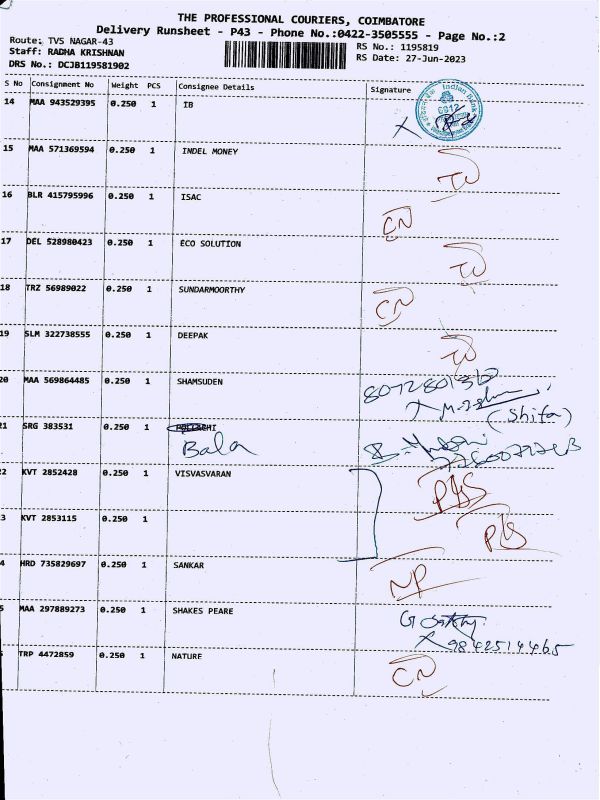 THE PROFESSIONAL COURIERS, COIMBATORE
Delivery Runsheet - P43 - Phone No.:0422-3505555 - Page No.:2
Route: TVS NAGAR-43
Staff: RADHA KRISHNAN
DRS No.: DCJB119581902
RS No.: 1195819
RS Date: 27-Jun-2023
S No Consignment No Weight PCS Consignee Details Signature
14 MAA 943529395 0.250 1 IB
Indian Bank
15 MAA 571369594 0.250 1 INDEL MONEY
16 BLR 415795996 0.250 1 ISAC CN
17 DEL 528980423 0.250 1 ECO SOLUTION
18 TRZ 56989022 0.250 1 SUNDARMOORTHY CN
19 SLM 322738555 0.250 1 DEEPAK
20 MAA 569864485 0.250 1 SHAMSUDEN
(Shifa)
21 SRG 383531 0.250 1
Bala
22 KVT 2852428 0.250 1 VISVASVARAN
3 KVT 2853115 0.250 1
4 HRD 735829697 0.250 1 SANKAR NP
5 MAA 297889273 0.250 1 SHAKES PEARE
9842514465
TRP 4472859 0.250 1 NATURE CN